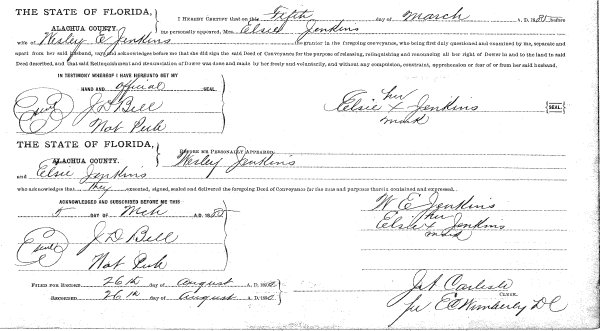 THE STATE OF FLORIDA,
ALACHUA COUNTY.
I HEREBY CERTIFY that on this Fifth day of March A. D. 18 before
me personally appeared, Mrs. Elsie Jenkins
wife of Wesley E Jenkins the grantor in the foregoing conveyance, who being first duly questioned and examined by me, separate and
apart from her said husband, and acknowledges before me that she did sign the said Deed of Conveyance for the purpose of releasing, relinquishing and renouncing all her right of Dower in and to the land in said
Deed described, and that said Relinquishment and Renunciation of Dower was done and made by her freely and voluntarily, and without any compulsion, constraint, apprehension or fear of or from her said husband.
IN TESTIMONY WHEREOF I HAVE HEREUNTO SET MY
HAND AND official SEAL.
Seal J D Bell
Not Pub
her
Elsie X Jenkins SEAL.
mark
THE STATE OF FLORIDA,
ALACHUA COUNTY.
BEFORE ME PERSONALLY APPEARED Wesley Jenkins
and Elsie Jenkins
who acknowledges that they executed, signed, sealed and delivered the foregoing Deed of Conveyance for the uses and purpose therein contained and expressed.
ACKNOWLEDGED AND SUBSCRIBED BEFORE ME THIS
5 DAY OF Mch A.D. 18
Seal J D Bell
Not Pub
W E Jenkins
her
Elsie X Jenkins
mark
FILED FOR RECORD 26th day of August A. D. 18
RECORDED 26th day of August A. D. 18
CLERK.
per E C Wimberly D C